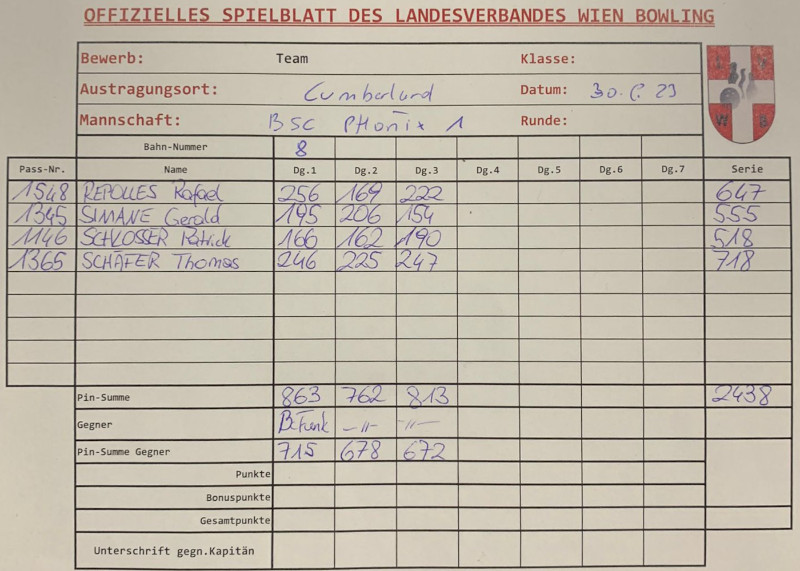 OFFIZIELLES SPIELBLATT DES LANDESVERBANDES WIEN BOWLING
Bewerb: Team Klasse:
Austragungsort: Cumberland Datum: 30. 23
Mannschaft: BSC PHönix 1 Runde:
Bahn-Nummer 8
Pass-Nr. Name Dg.1 Dg.2 Dg.3 Dg.4 Dg.5 Dg.6 Dg.7 Serie
1548 REPOLLES Rafael 256 169 222 647
1345 SIMANE Gerald 195 206 154 555
1146 SCHLOSSER Patrick 166 162 190 518
1365 SCHÄFER Thomas 246 225 247 718
Pin-Summe 863 762 813 2438
Gegner B.Funk -11- -11-
Pin-Summe Gegner 715 678 672
Punkte
Bonuspunkte
Gesamtpunkte
Unterschrift gegn.Kapitän